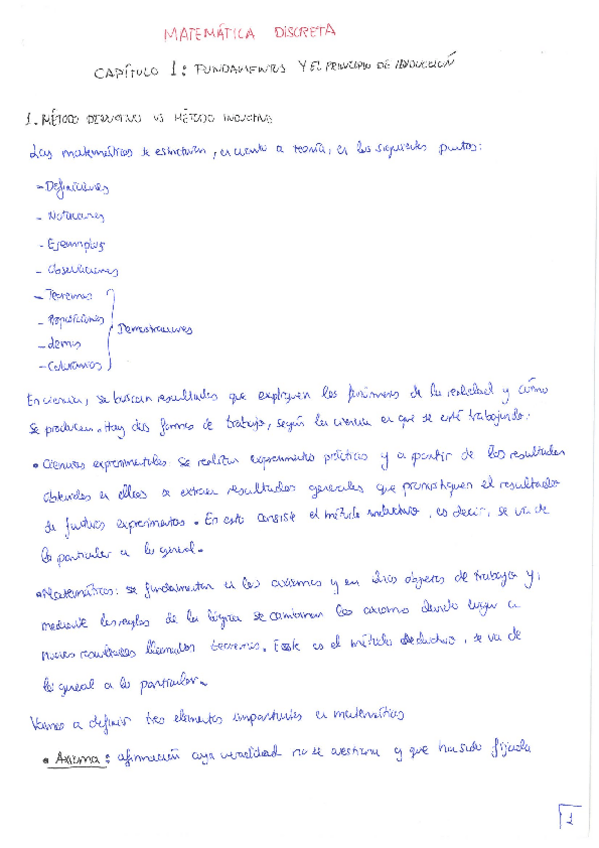 MATEMÁTICA DISCRETA
CAPÍTULO 1: FUNDAMENTOS Y EL PRINCIPIO DE INDUCCIÓN
1. MÉTODO DEDUCTIVO VS MÉTODO INDUCTIVO
Las matemáticas se estructuran, en cuanto a teoría, en los siguientes puntos:
- Definiciones
- Notaciones
- Ejemplos
- Observaciones
- Teoremas
- Proposiciones
Demostraciones
- Lemas
- Corolarios
En ciencia, se buscan resultados que expliquen los fenómenos de la realidad y cómo
se producen. Hay dos formas de trabajo, según la ciencia en que se esté trabajando:
• Ciencias experimentales se realizan experimentos prácticos y a partir de los resultados
obtenidos en ellos se extraen resultados generales que pronostiquen el resultado
de futuros experimentos. En esto consiste el método inductivo, es decir, se va de
lo particular a lo general.
• Matemáticas: se fundamentan en los axiomas y en los objetos de trabajo y,
mediante las reglas de la lógica se combinan los axiomas dando lugar a
nuevos resultados llamados teoremas. Este es el método deductivo, se va de
lo general a lo particular.
Vamos a definir tres elementos importantes en matemáticas
• Axioma: afirmación cuya veracidad no se cuestiona y que ha sido fijada
1